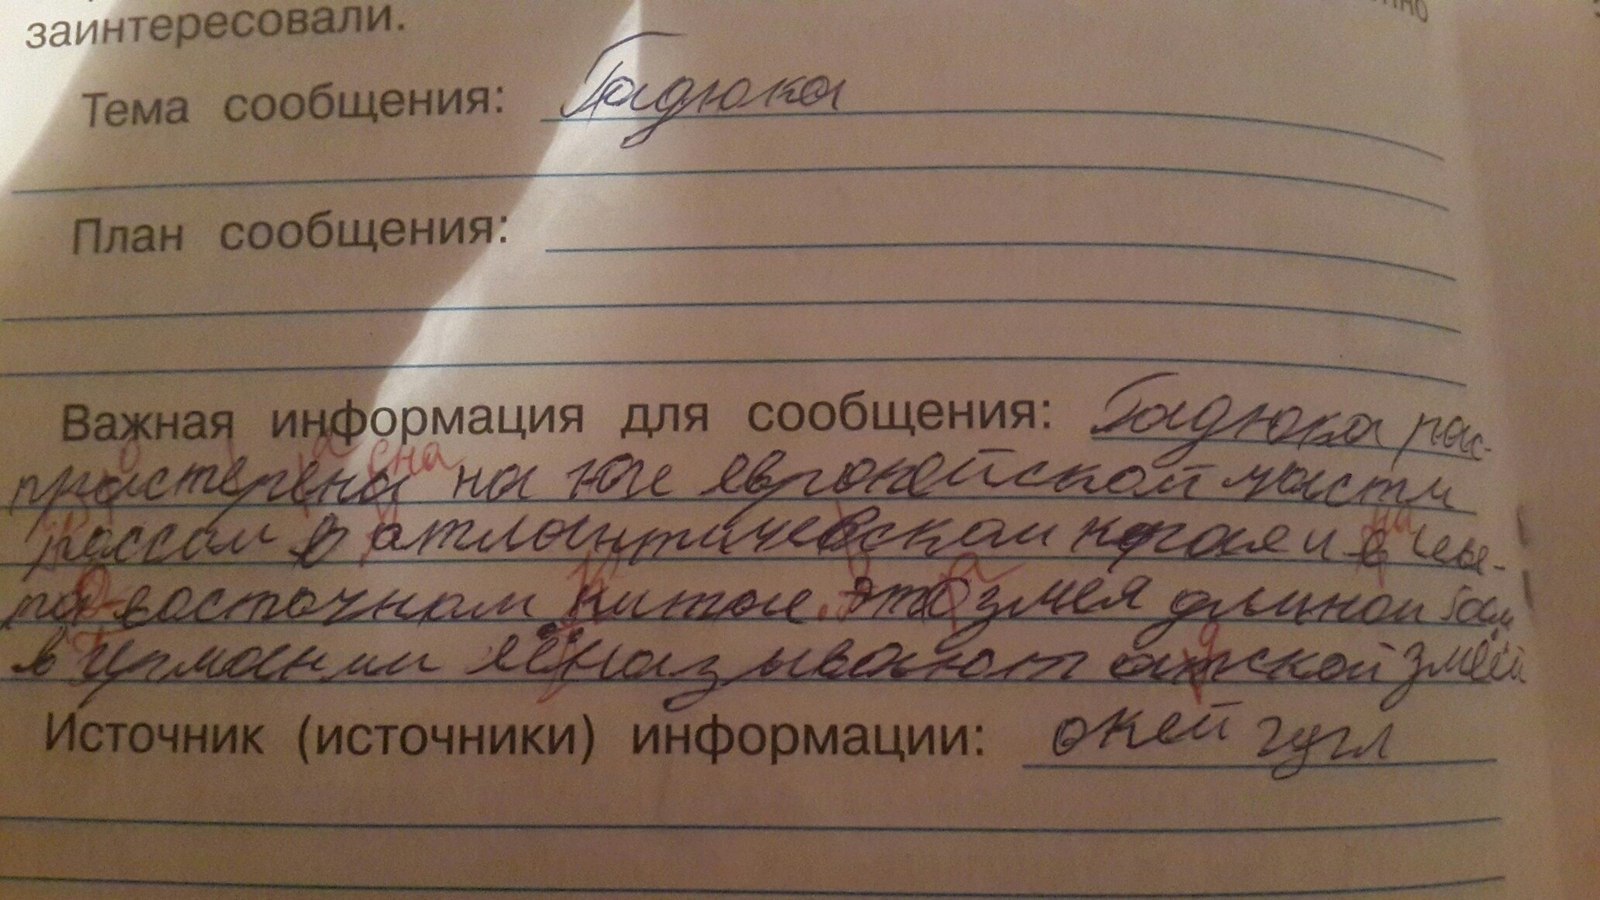 заинтересовали.
Тема сообщения: Гадюка
План сообщения:
Важная информация для сообщения: Гадюка рас-
на юге европейской части
в атлантическом
восточном китае. это змея длиной
в называют адской змеёй
Источник (источники) информации: окей гугл